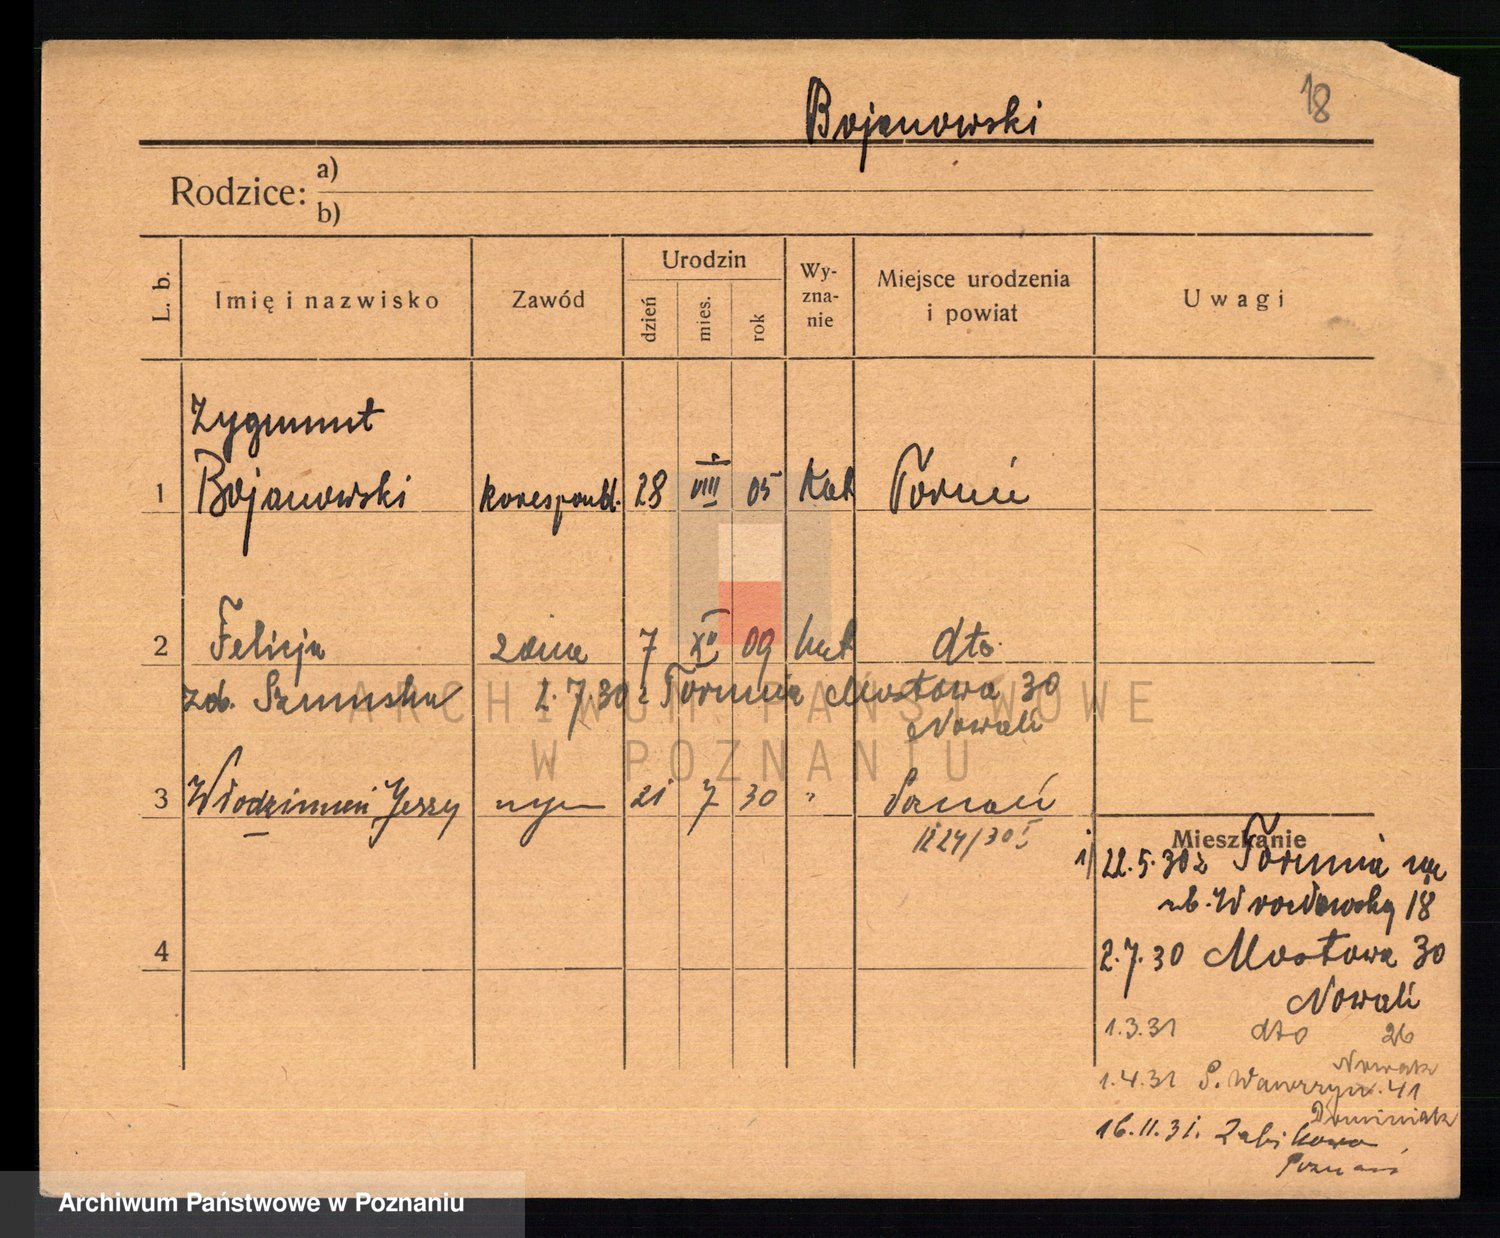 18
Bojanowski
Rodzice: a)
b)
L. b. Imię i nazwisko Zawód Urodzin dzień mies. rok Wy-zna-nie Miejsce urodzenia i powiat Uwagi
Zygmunt
1 Bojanowski korespond. 28 VIII 05 kat Toruń
2 Felicja żona 7 XII 09 kat dto
zd. 2.7.30 z Torunia Mostowa 30
Nowak
3 Włodzimierz Jerzy syn 21 7 30 " Poznań
1224/30 I
Mieszkanie
1) 22.5.30 z Torunia na
ub. Wrocławską 18
4
2.7.30 Mostowa 30
Nowak
1.3.31 dto 26
Nowak
1.4.31 S. Wawrzyn. 41
Dominiak
16.11.31. Żabikowo
Poznań
ARCHIWUM PAŃSTWOWE
W POZNANIU
Archiwum Państwowe w Poznaniu